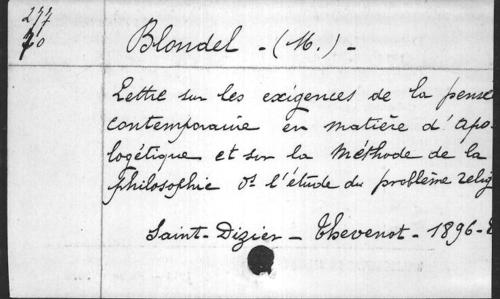 277
70
Blondel - (M.) -
Lettre sur les exigences de la pensé
contemporaine en matière d'Apo-
logétique et sur la Méthode de la
Philosophie ds l'étude du problème relig
Saint-Dizier - Thevenot - 1896-